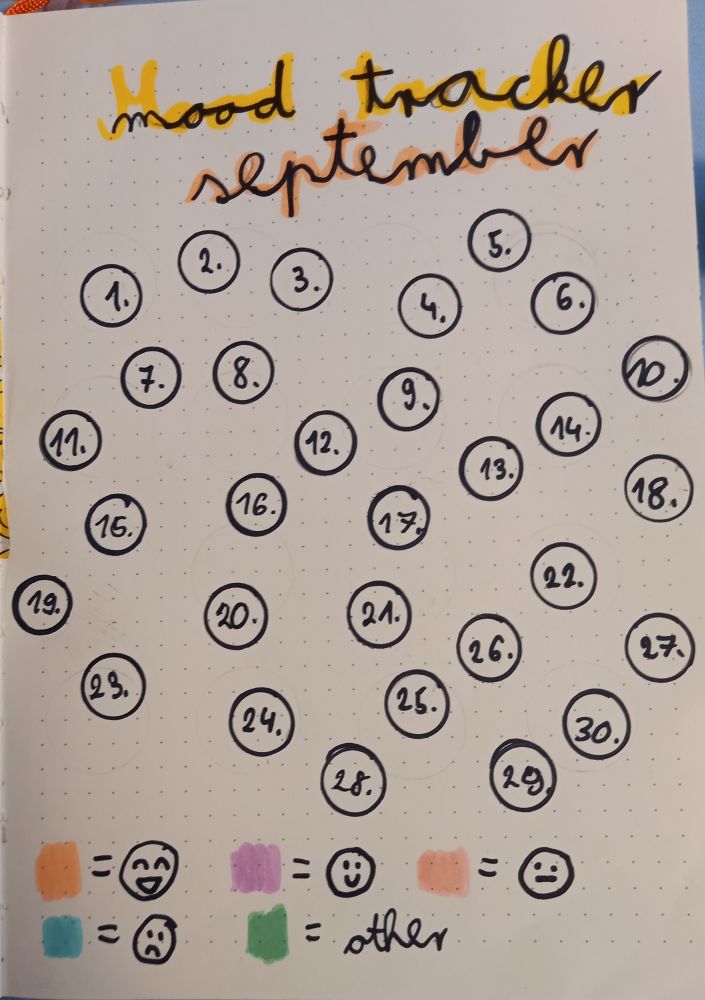 mood tracker
september
1. 2. 3. 4. 5. 6.
7. 8. 9. 10.
11. 12. 13. 14.
15. 16. 17. 18.
19. 20. 21. 22.
23. 24. 25. 26. 27.
28. 29. 30.
= = =
= = other